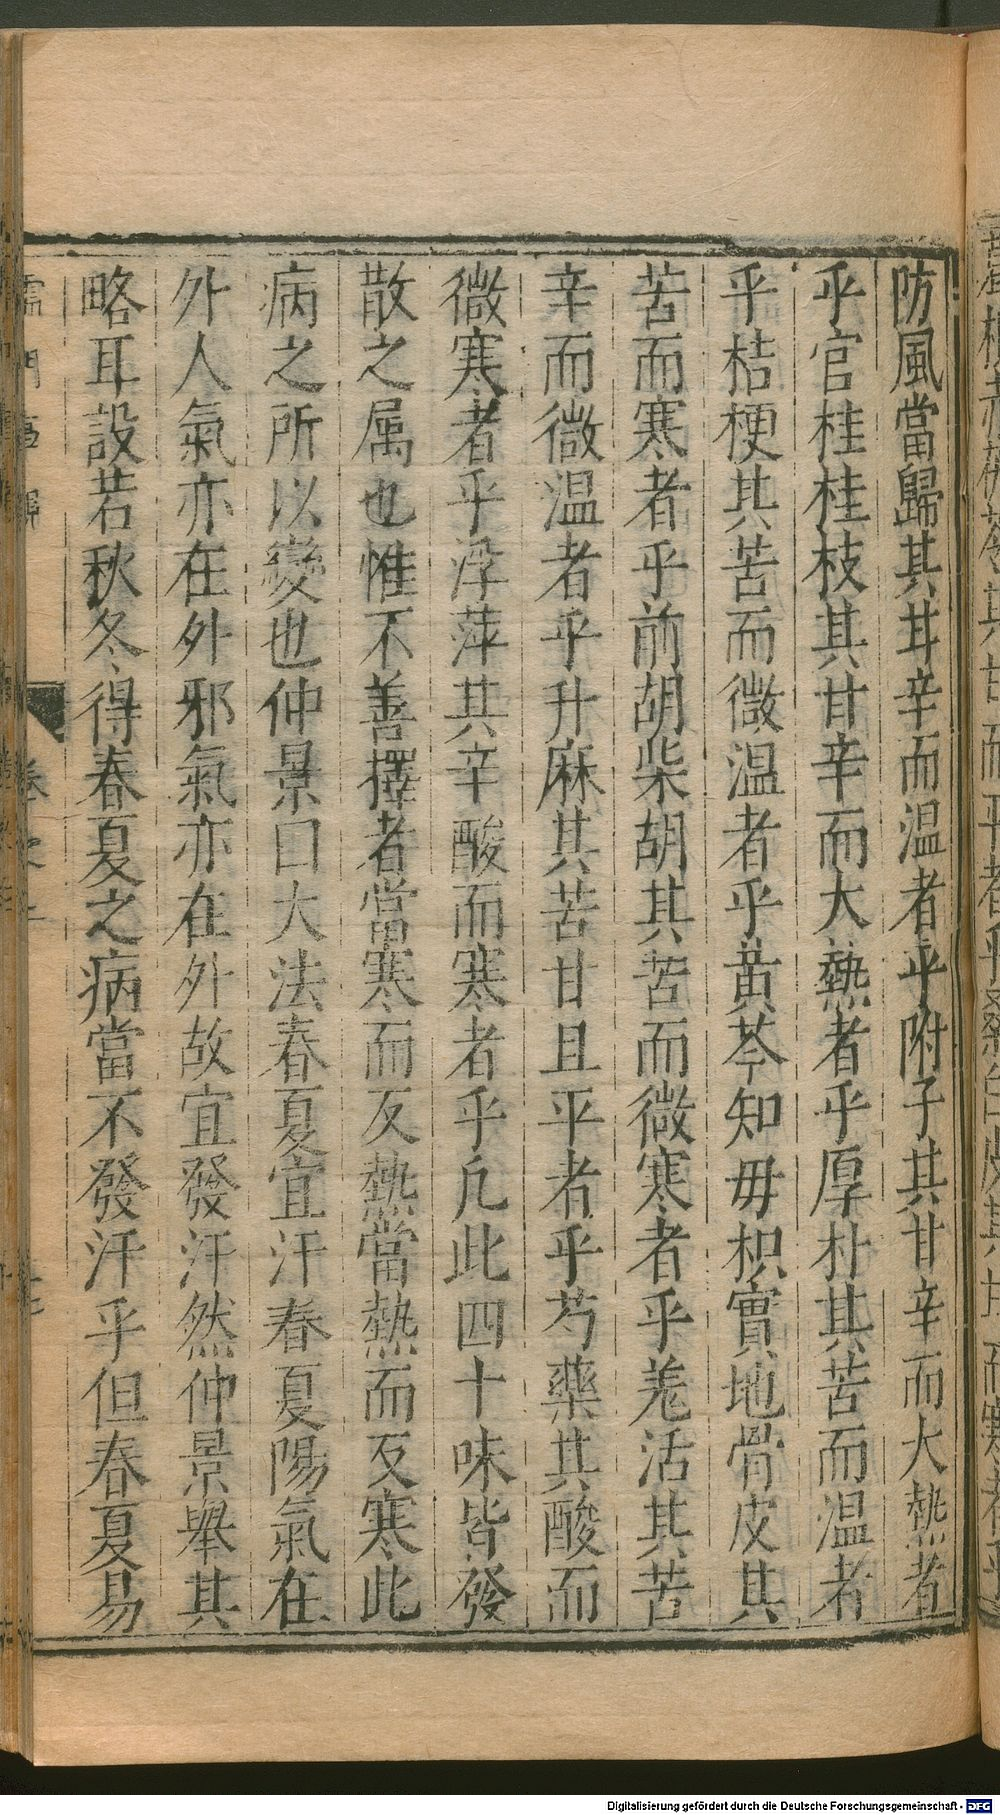 防風當歸其甘辛而温者乎附子其甘辛而大熱者
乎官桂桂枝其甘辛而大熱者乎厚朴其苦而温者
乎桔梗其苦而微温者乎黄芩知母枳實地骨皮其
苦而寒者乎前胡柴胡其苦而微寒者乎羗活其苦
辛而微温者乎升麻其苦甘且平者乎芍藥其酸而
微寒者乎浮萍其辛酸而寒者乎凡此四十味皆發
散之属也惟不善擇者當寒而反熱當熱而反寒此
病之所以變也仲景曰大法春夏宜汗春夏陽氣在
外人氣亦在外邪氣亦在外故宜發汗然仲景舉其
略耳設若秋冬得春夏之病當不發汗乎但春夏易
儒門事親 卷之二
Digitalisierung gefördert durch die Deutsche Forschungsgemeinschaft - DFG